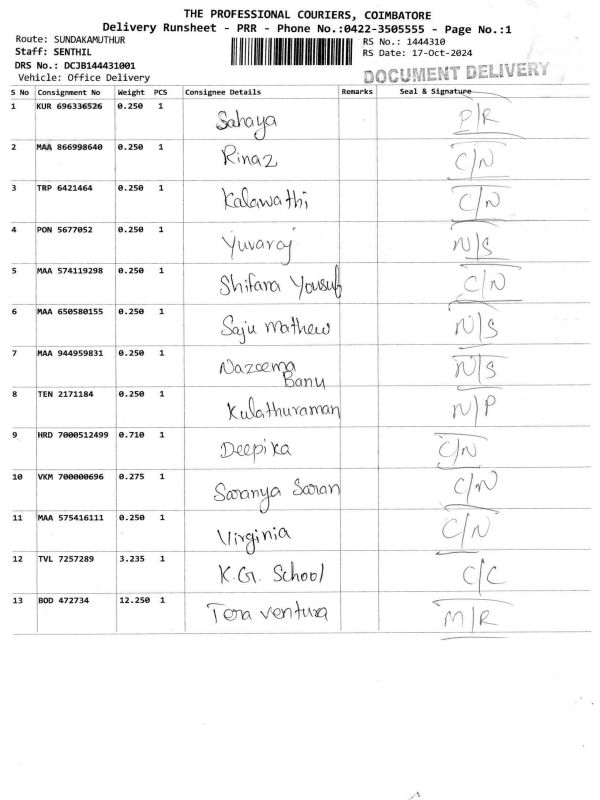 THE PROFESSIONAL COURIERS, COIMBATORE
Delivery Runsheet - PRR - Phone No.:0422-3505555 - Page No.:1
Route: SUNDAKAMUTHUR
RS No.: 1444310
Staff: SENTHIL
RS Date: 17-Oct-2024
DRS No.: DCJB144431001
Vehicle: Office Delivery
DOCUMENT DELIVERY
S No Consignment No Weight PCS Consignee Details Remarks Seal & Signature
1 KUR 696336526 0.250 1 Sahaya P/R
2 MAA 866998640 0.250 1 Rinaz C/N
3 TRP 6421464 0.250 1 Kalawathi C/N
4 PON 5677052 0.250 1 Yuvaraj N/S
5 MAA 574119298 0.250 1 Shifana Yousuf C/N
6 MAA 650580155 0.250 1 Saju mathew N/S
7 MAA 944959831 0.250 1 Nazeema Banu N/S
8 TEN 2171184 0.250 1 Kulathuraman N/P
9 HRD 7000512499 0.710 1 Deepika C/N
10 VKM 700000696 0.275 1 Saranya Saran C/N
11 MAA 575416111 0.250 1 Virginia C/N
12 TVL 7257289 3.235 1 K.G. School C/C
13 BOD 472734 12.250 1 Tera ventura M/R